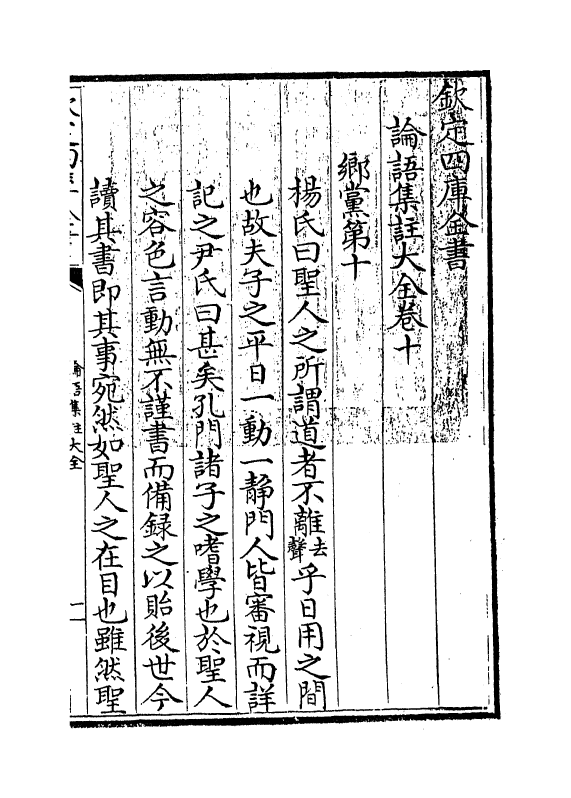 欽定四庫全書
論語集註大全卷十
鄉黨第十
楊氏曰聖人之所謂道者不離去聲乎日用之間
也故夫子之平日一動一静門人皆審視而詳
記之尹氏曰甚矣孔門諸子之嗜學也於聖人
之容色言動無不謹書而備録之以貽後世今
讀其書即其事宛然如聖人之在目也雖然聖
論語集註大全